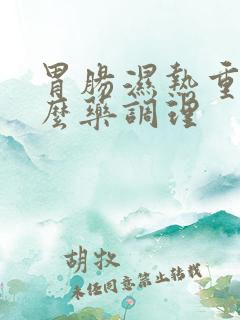 胃腸濕熱重
麼藥調理
胡牧
未经同意禁止转载